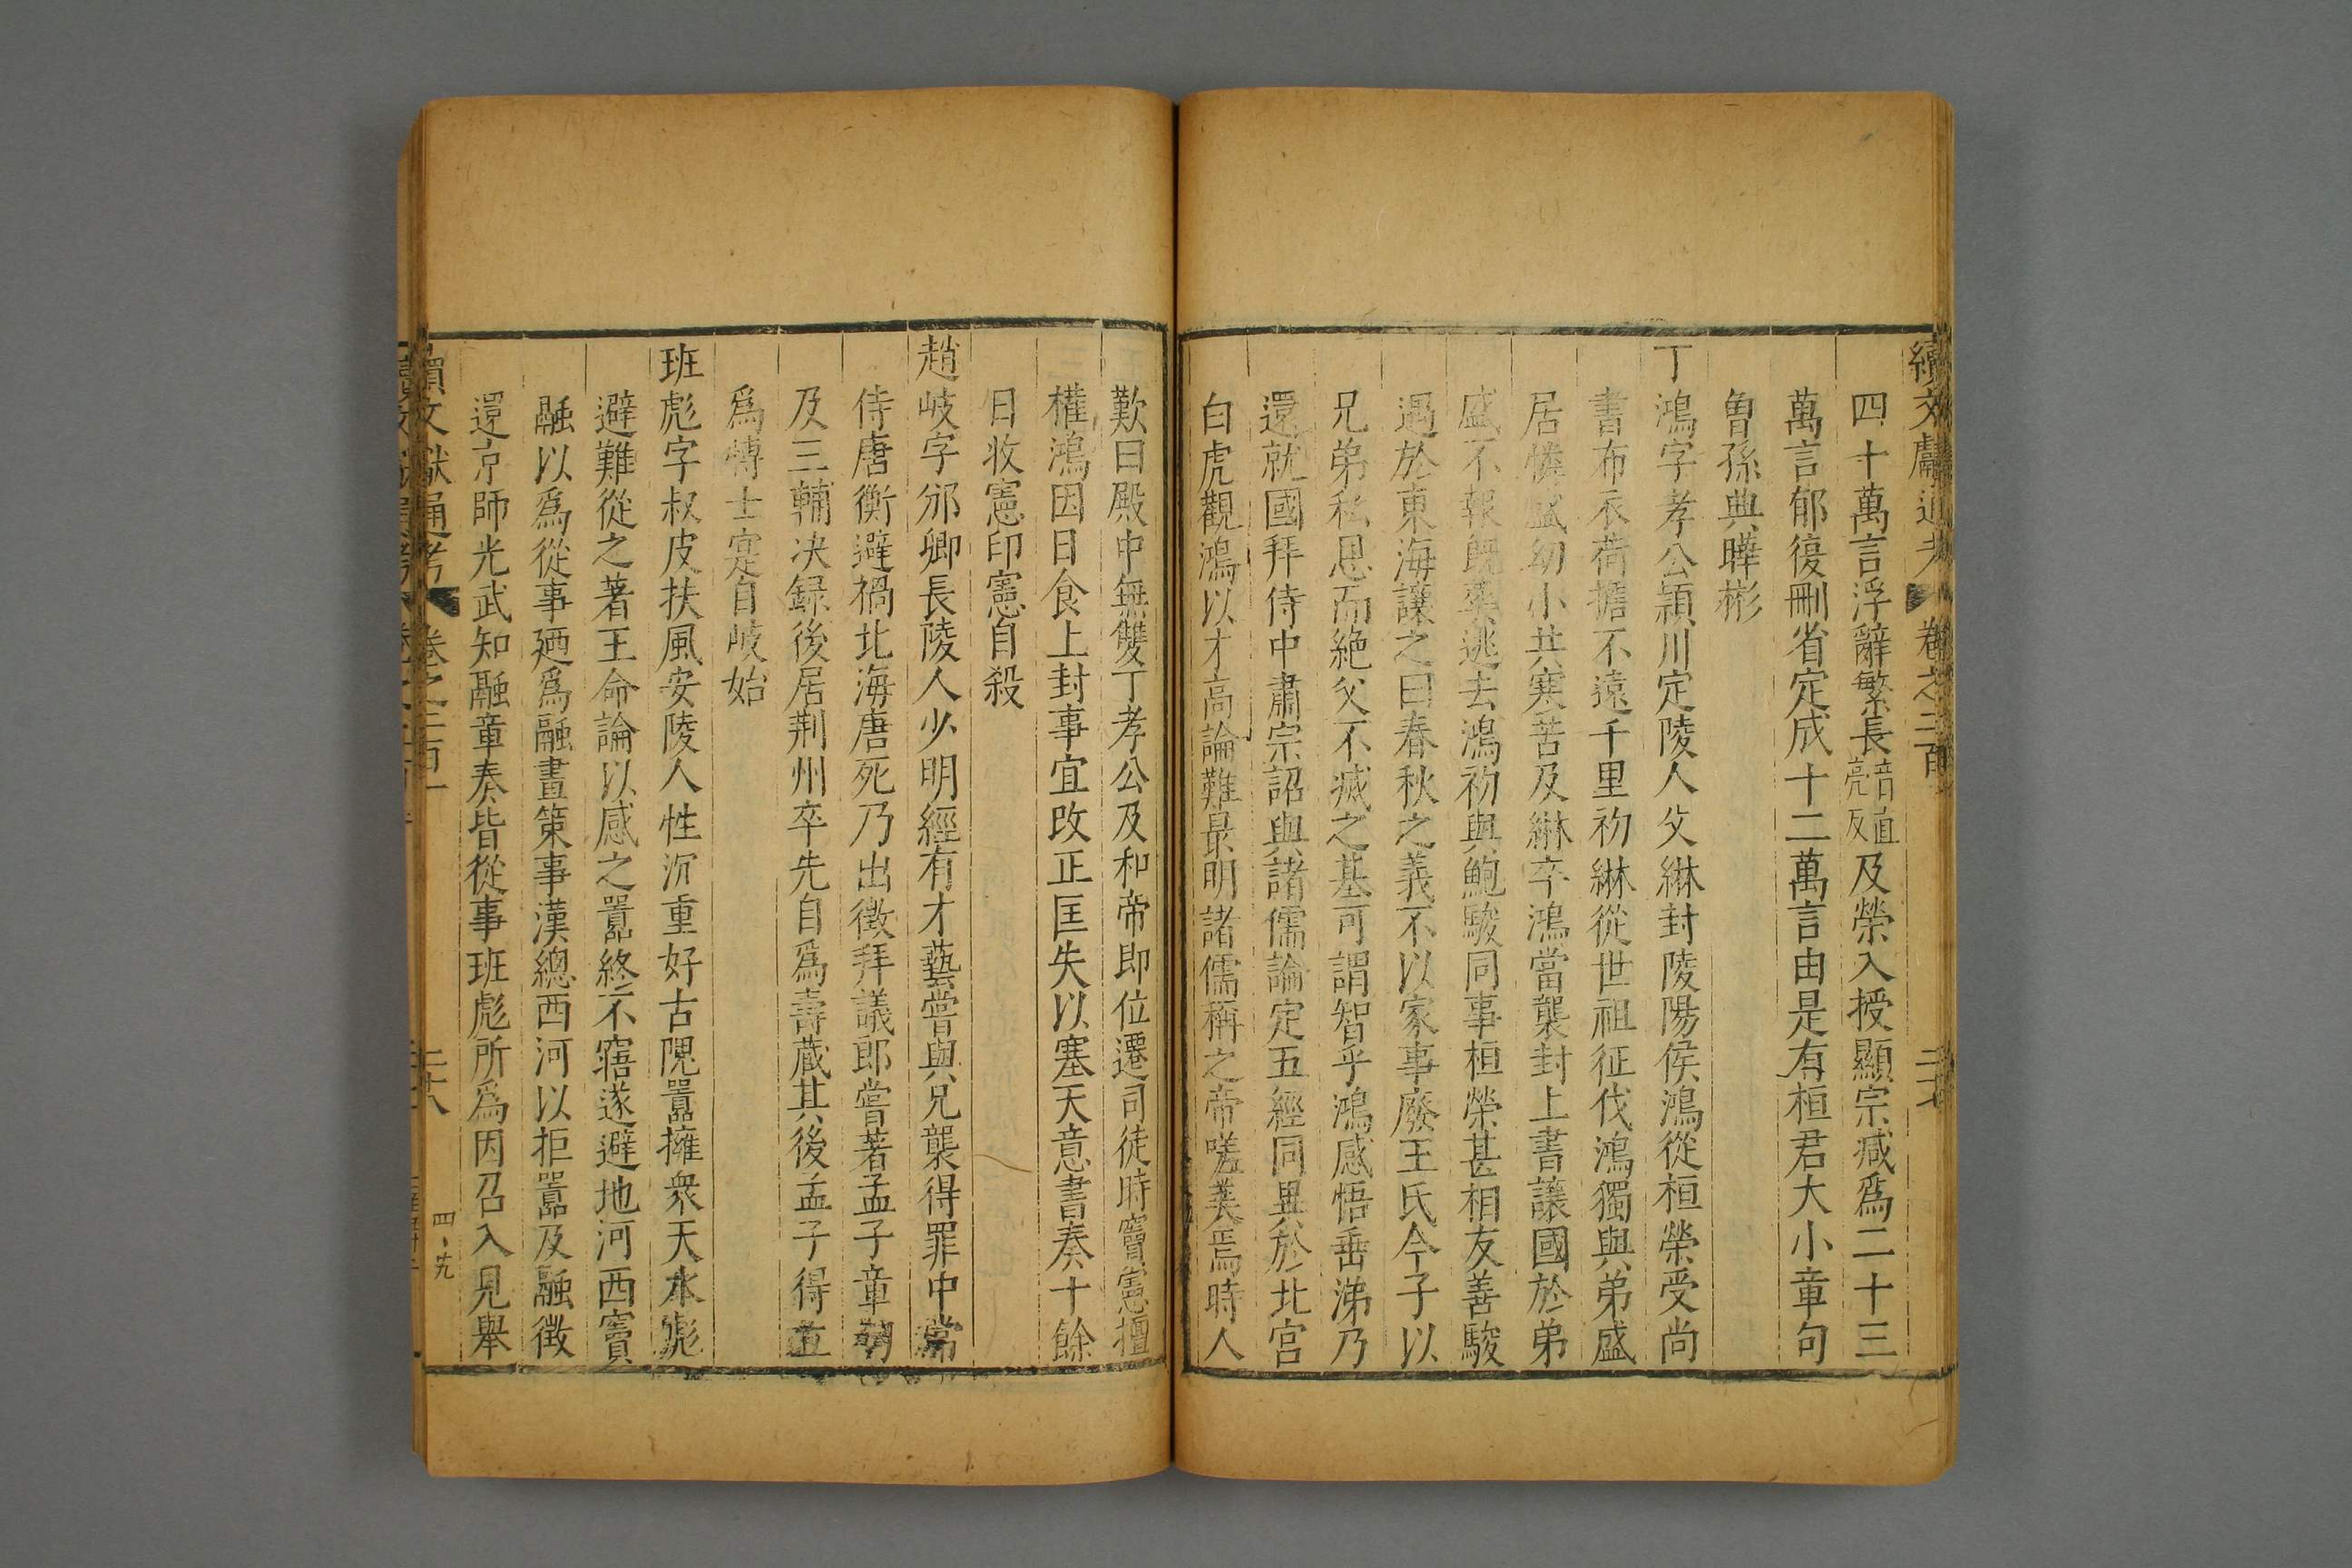 續文獻通考 卷之二百
四十萬言浮辭繁長音直亮反及榮入授顯宗减爲二十三
萬言郁復刪省定成十二萬言由是有桓君大小章句
曾孫典曄彬
丁鴻字孝公潁川定陵人父綝封陵陽侯鴻從桓榮受尚
書布衣荷擔不遠千里初綝從世祖征伐鴻獨與弟盛
居憐盛幼小共寒苦及綝卒鴻當襲封上書讓國於弟
盛不報旣葬逃去鴻初與鮑駿同事桓榮甚相友善駿
遇於東海讓之曰春秋之義不以家事廢王氏今子以
兄弟私恩而絶父不滅之基可謂智乎鴻感悟垂涕乃
還就國拜侍中肅宗詔與諸儒論定五經同異於北宫
白虎觀鴻以才高論難最明諸儒稱之帝嗟羙焉時人
歎曰殿中無雙丁孝公及和帝即位遷司徒時竇憲擅
權鴻因日食上封事宜改正匡失以塞天意書奏十餘
日收憲印憲自殺
趙岐字邠卿長陵人少明經有才藝嘗與兄襲得罪中常
侍唐衡避禍北海唐死乃出徴拜議郎嘗著孟子章
及三輔决録後居荆州卒先自爲壽藏其後孟子得立
爲愽士寔自岐始
班彪字叔皮扶風安陵人性沉重好古隗囂擁衆天水彪
避難從之著王命論以感之囂終不寤遂避地河西竇
融以爲從事廼爲融畫策事漢總西河以拒囂及融徴
還京師光武知融章奏皆從事班彪所爲因召入見舉
續文獻通考 卷之二百一 二十八
四、九